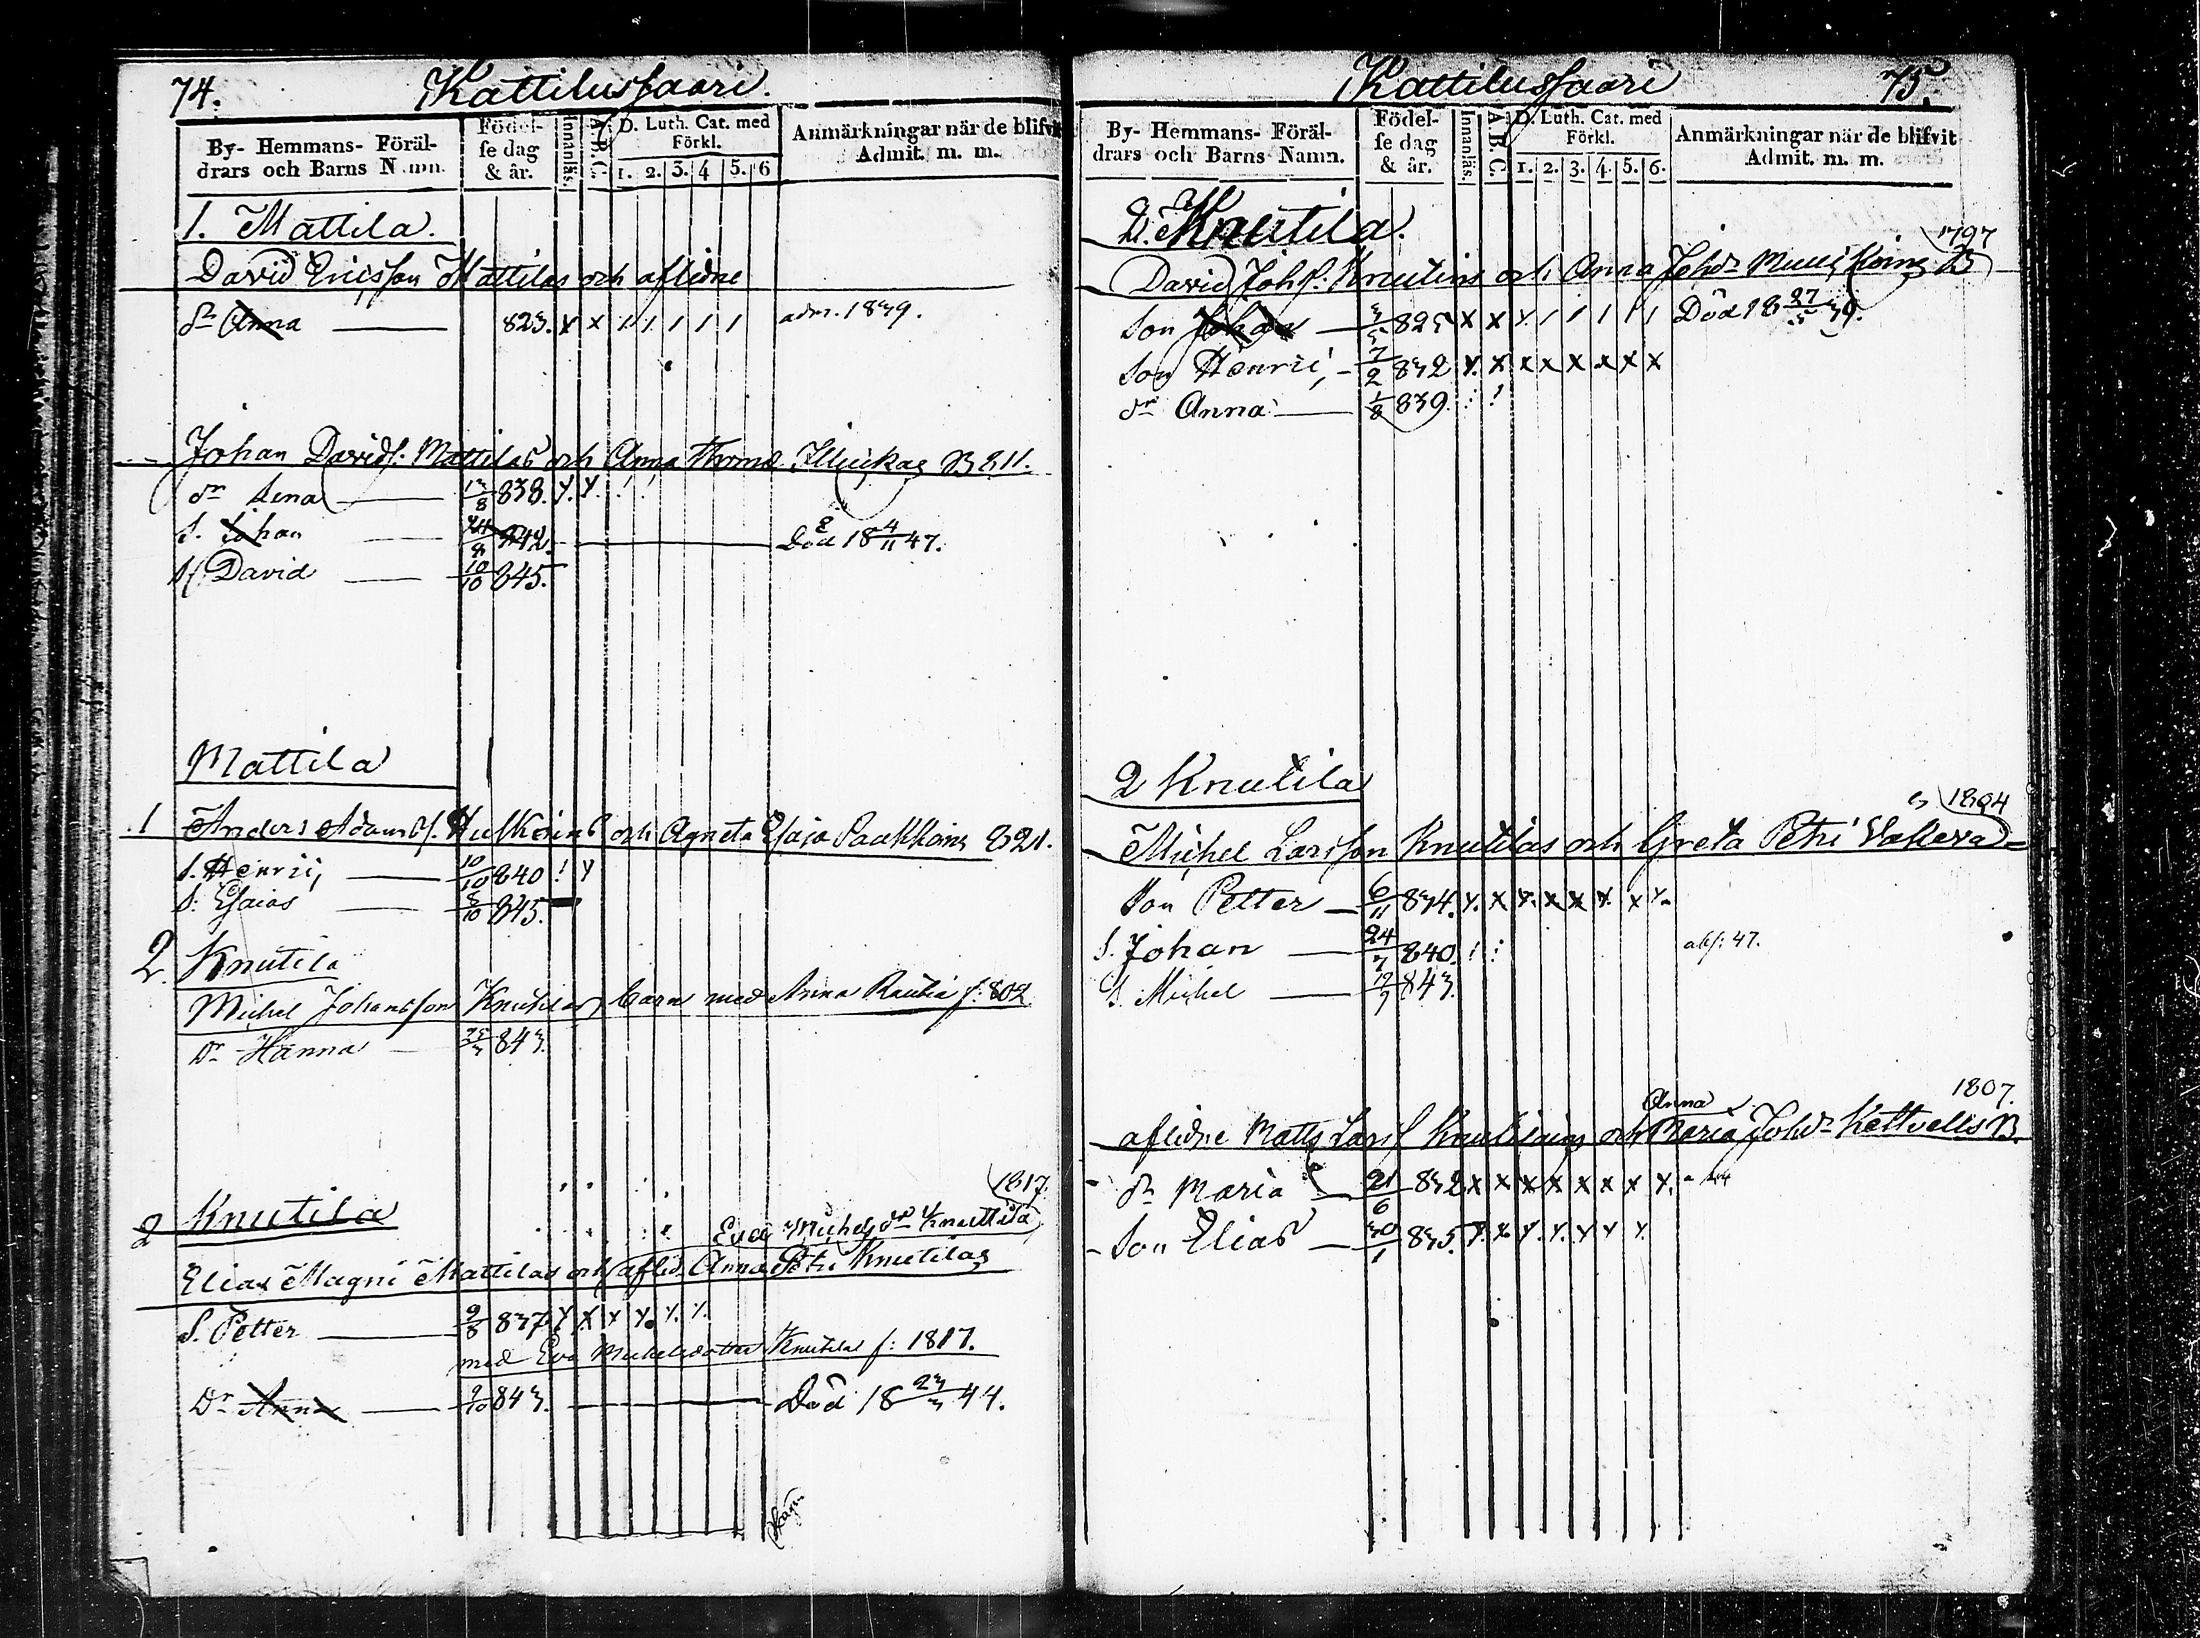 74.
Kattilussaari.
By- Hemmans- Föräl-
drars och Barns Namn.
Födel-
se dag
& år.
Innanläs.
A.B.C.
D. Luth. Cat. med
Förkl.
1. 2. 3. 4 5. 6
Anmärkningar när de blifvit
Admit. m. m.
1. Mattila.
David Ericsson Mattilas och aflidne
dr Anna 823. x x / / / / / / adm. 1839.
Johan Davids: Mattilas och Anna Thoma B 811.
dr Lena 838. y. y. ! !
S. Johan 842. Död 18 4/11 47.
S. David 10/10 845.
Mattila
1 Anders Adams och Agneta Esaia Paakkoins 821.
S. Henric, 10/10 840 ! y
S. Esaias 8/10 845.
2. Knutila
Michel Johansson Knutilas barn med Anna Rautia f: 802
Dr Hanna 843.
1817.
2 Knutila
Eva Michelsdr Knuttila
Elias Magni Mattilas och aflid. Anna Petri Knutilas
S. Petter 9/8 837. y x x y. y. y.
med Eva Michelsdotter Knutilas f: 1817.
Dr Anna 9/10 843. Död 18 23/3 44.
Kattilussaari
75.
By- Hemmans- Föräl-
drars och Barns Namn.
Födel-
se dag
& år.
Innanläs.
A.B.C.
D. Luth. Cat. med
Förkl.
1. 2. 3. 4. 5. 6.
Anmärkningar när de blifvit
Admit. m. m.
2. Knutila.
1797
David Johs: Knutilas och Anna Johdr B
Son Johan 3/5 825 x x y / / / / / Död 18 27/5 39.
Son Henric, 7/2 832 y. x x x x x x x
dr Anna 1/8 839. : !
2 Knutila
1804
Michel Larsson Knutilas och Greta Petri
Son Petter 6/11 834. y. x y. x x y. x y.
S. Johan 24/7 840. ! : abs: 47.
S. Michel 843.
Anna
1807.
aflidne Matts Lars och Maria Johdr B.
dr Maria 21/6 832 x x x x x x x y.
Son Elias 30/1 835. y. x y. y. y y y.